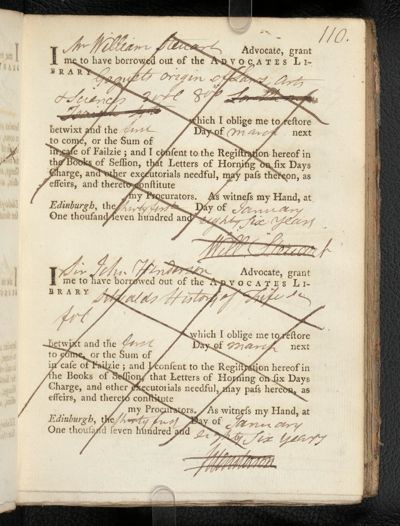 110.
I Mr William Steuart Advocate, grant
me to have borrowed out of the ADVOCATES LI-
BRARY Goguets origin of Laws, Arts
& Sciences 8º
which I oblige me to restore
betwixt and the first Day of march next
to come, or the Sum of
in case of Failzie; and I consent to the Registration hereof in
the Books of Session, that Letters of Horning on six Days
Charge, and other executorials needful, may pass thereon, as
effeirs, and thereto constitute
my Procurators. As witness my Hand, at
Edinburgh, the thirty first Day of January
One thousand seven hundred and eighty six Years.
Will Steuart
I Sir John Henderson Advocate, grant
me to have borrowed out of the ADVOCATES LI-
BRARY Sibbalds History of Fife in
fol
which I oblige me to restore
betwixt and the first Day of march next
to come, or the Sum of
in case of Failzie; and I consent to the Registration hereof in
the Books of Session, that Letters of Horning on six Days
Charge, and other executorials needful, may pass hereon, as
effeirs, and thereto constitute
my Procurators. As witness my Hand, at
Edinburgh, the thirty first Day of January
One thousand seven hundred and eighty Six Years